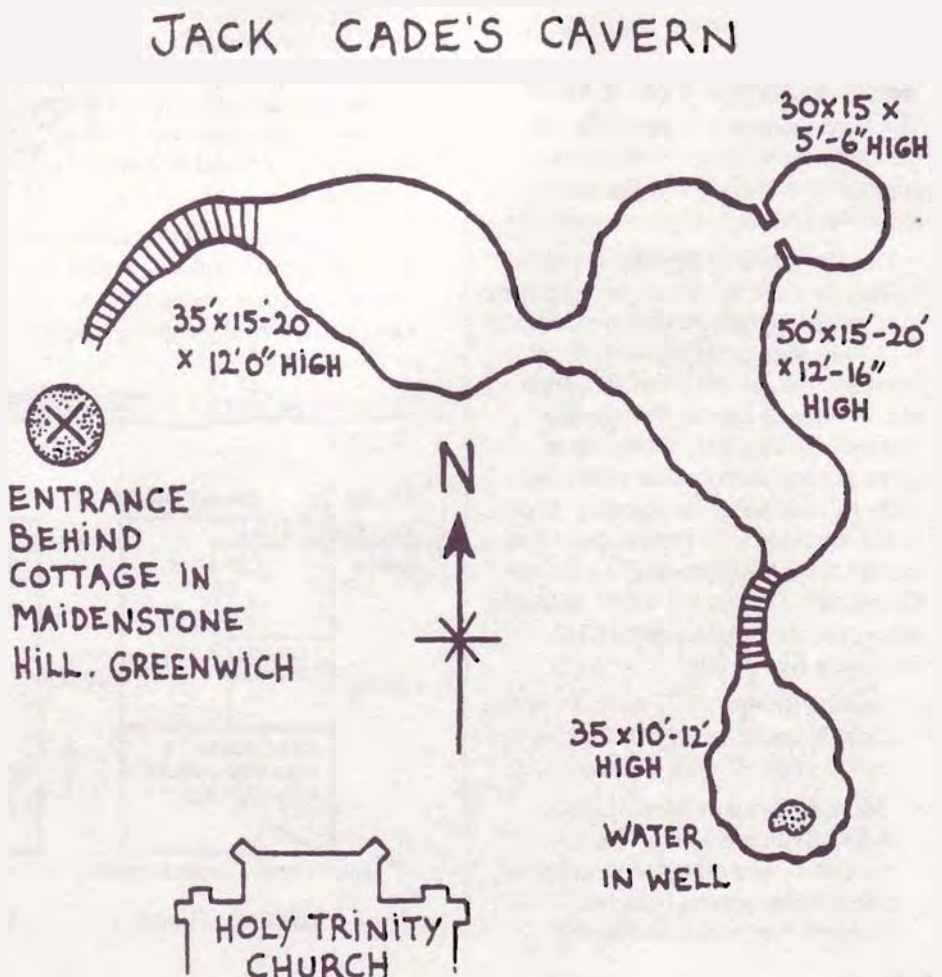 JACK CADE'S CAVERN
30x15 x
5'-6" HIGH
35'x15-20
x 12'0" HIGH
50'x15'-20'
x12'-16"
HIGH
ENTRANCE
BEHIND
COTTAGE IN
MAIDENSTONE
HILL. GREENWICH
N
35 x10'-12'
HIGH
WATER
IN WELL
HOLY TRINITY
CHURCH